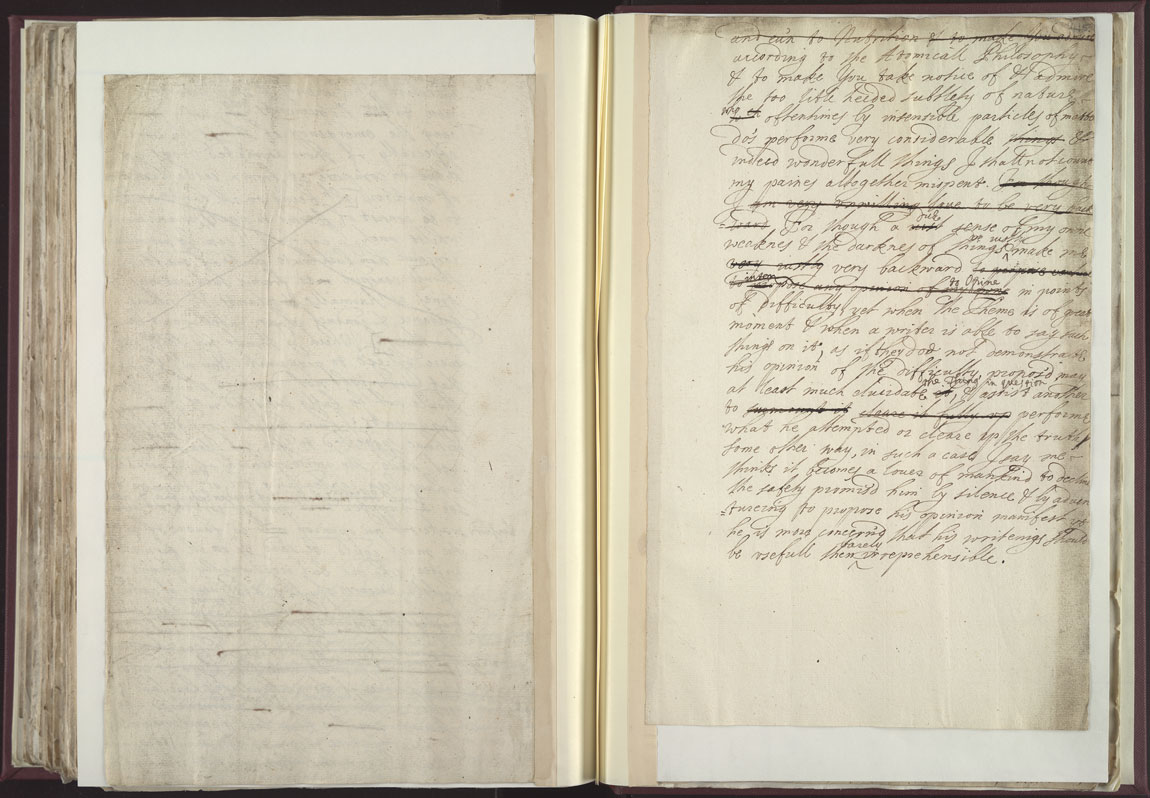 and run to Nutrition & to make you
according to the Atomicall Philosophy
& to make you take notice of & admire
the too litle heeded subtlety of nature
wch oftentimes by insensible particles of matter
do's performe very considerable things &
indeed wonderfull things I shall not
my paines altogether mispent. For though
I am very unwilling to be very
For though a due sense of my owne
weaknes & the darknes of things make me
very justly very backward
to opine in points
of difficulty, yet when the Theme is of great
moment & when a writer is able to say such
things on it, as if they doe not demonstrate
his opinion of the difficulty propos'd may
at least much elucidate it, the thing in question & assist another
to surmount it cleare it fully up performe
what he attempted or cleare up the truth
some other way, in such a case I say me-
thinks it becomes a lover of mankind to decline
the safety promis'd him by silence & by adven
=tureing to propose his opinion manifest yt
he is more concern'd that his writeings should
be usefull then barely irreprehensible.